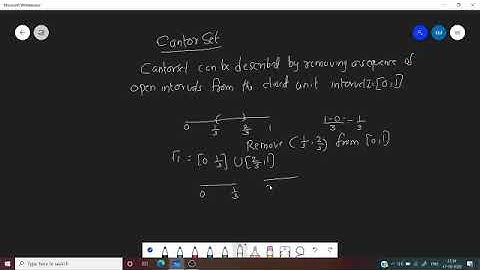 Microsoft Whiteboard
Cantor Set
Cantorset can be described by removing a sequence of
open intervals from the closed unit interval I=[0,1]
0 1/3 2/3 1
1-0/3 = 1/3
Remove (1/3, 2/3) from [0,1]
= [0 1/3] ∪ [2/3, 1]
0 1/3